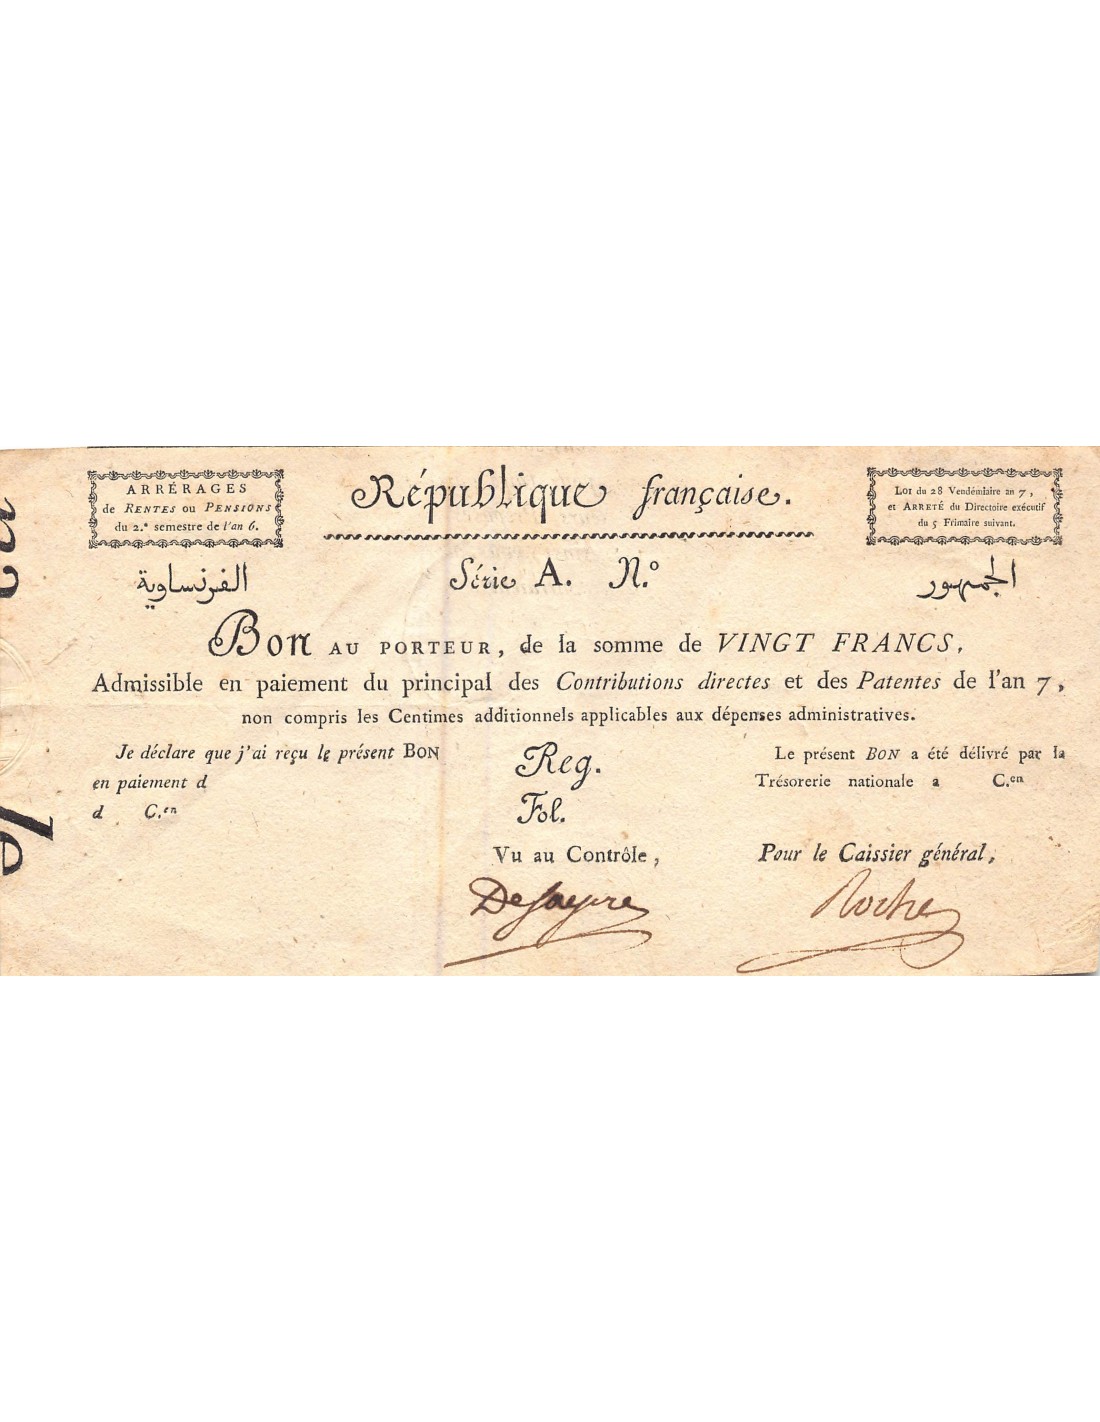 ARRÉRAGES
de RENTES ou PENSIONS
du 2.e semestre de l'an 6.
République française.
Loi du 28 Vendémiaire an 7,
et ARRETÉ du Directoire exécutif
du 5 Frimaire suivant.
الفرنساوية
Série A. N.o
الجمهور
Bon AU PORTEUR, de la somme de VINGT FRANCS,
Admissible en paiement du principal des Contributions directes et des Patentes de l'an 7,
non compris les Centimes additionnels applicables aux dépenses administratives.
Je déclare que j'ai reçu le présent BON
en paiement d
d C.en
Reg.
Fol.
Vu au Contrôle,
Le présent BON a été délivré par la
Trésorerie nationale a C.en
Pour le Caissier général,
Roche